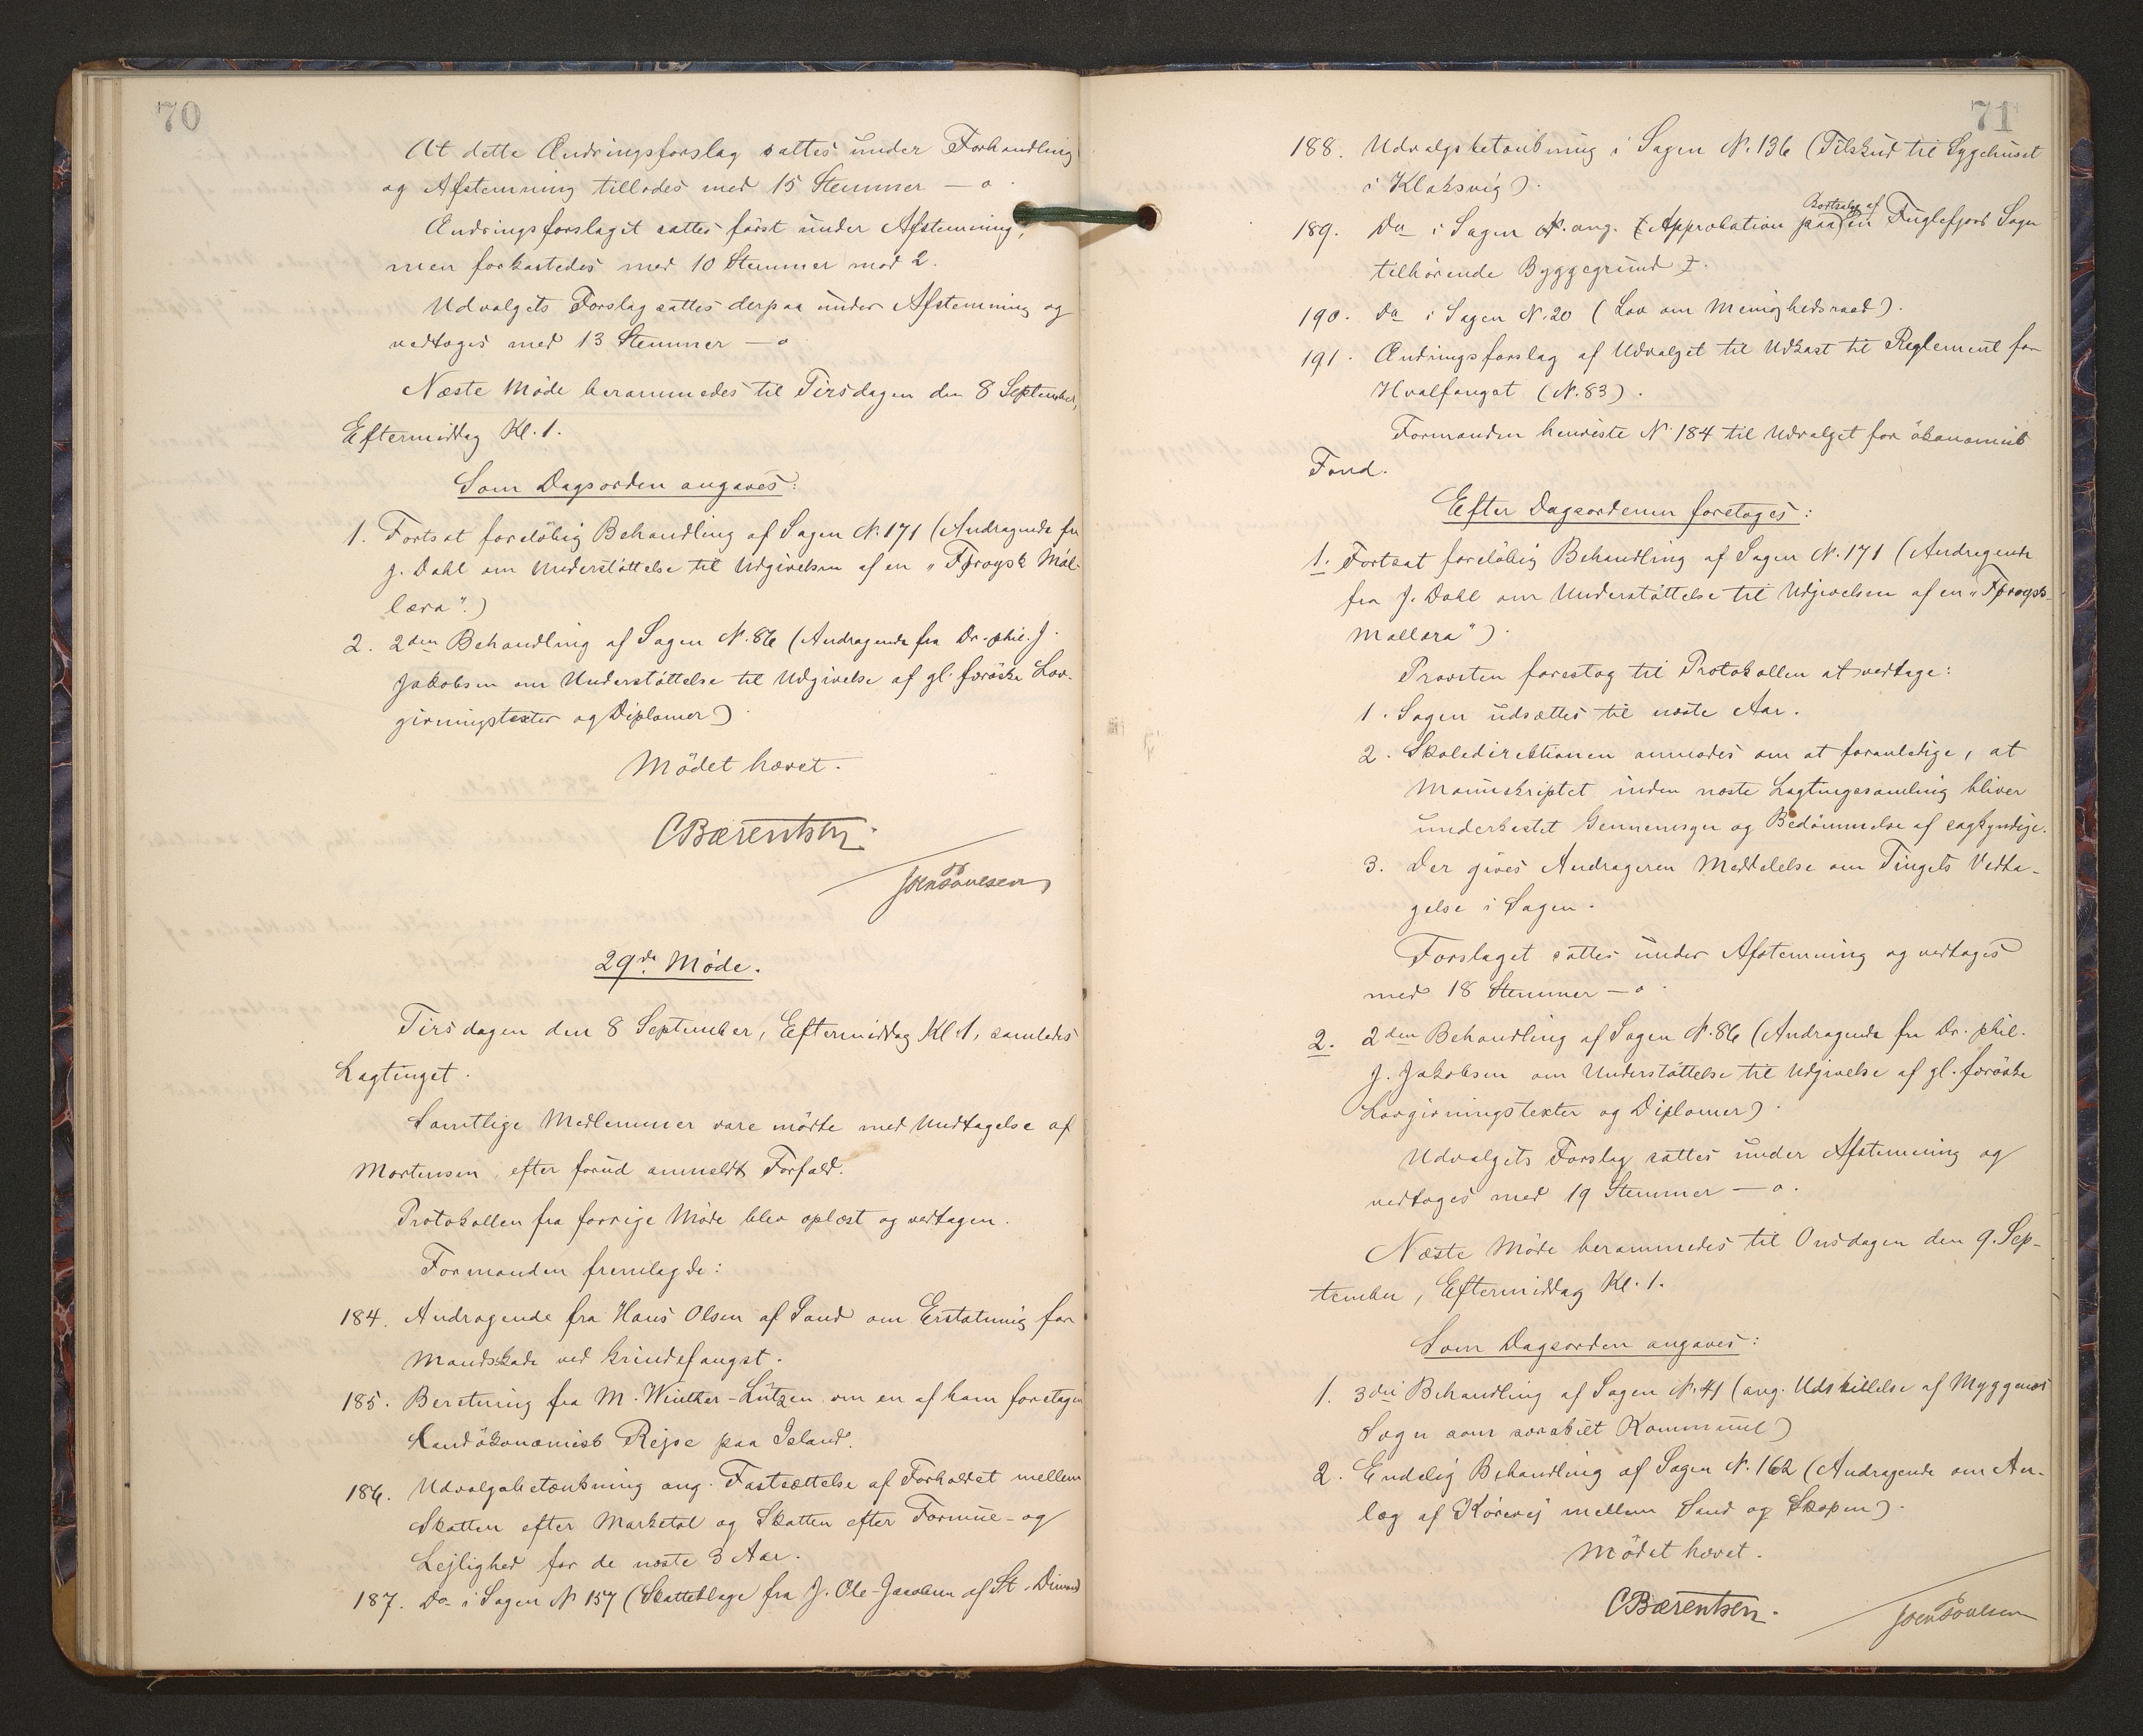 70
At dette Ændringsforslag sattes under Forhandling
og Afstemning tillodes med 15 Stemmer — 0.
Ændringsforslaget sattes först under Afstemning,
men forkastedes med 10 Stemmer mod 2.
Udvalgets Forslag sattes derpaa under Afstemning og
vedtoges med 13 Stemmer — 0
Næste Möde berammedes til Tirsdagen den 8 September,
Eftermiddag Kl. 1.
Som Dagsorden angaves:
1. Fortsat foreløbig Behandling af Sagen N. 171 (Andragende fra
J. Dahl om Understöttelse til Udgivelsen af en "Føroysk Mál-
læra".)
2. 2den Behandling af Sagen N. 86 (Andragende fra Dr. phil. J.
Jakobsen om Understöttelse til Udgivelse af gl. færöske Lov-
givningstexter og Diplomer)
Mödet hævet.
C Bærentsen.
29de Møde.
Tirsdagen den 8 September, Eftermiddag Kl. 1, samledes
Lagtinget.
Samtlige Medlemmer vare mödte med Undtagelse af
Mortensen, efter forud anmeldt Forfald.
Protokollen fra forrige Möde blev oplæst og vedtagen.
Formanden fremlagde:
184. Andragende fra Hans Olsen af Sand om Erstatning for
Mandskade ved Grindefangst.
185. Beretning fra M. Winther-Lützen om en af ham foretagen
Landökonomisk Rejse paa Island.
186. Udvalgsbetænkning ang. Fastsættelse af Forholdet mellem
Skatten efter Marketal og Skatten efter Formue- og
Lejlighed for de næste 3 Aar.
187. Do i Sagen N 157 (Skatteklage fra J. Ole Jacobsen af St. Dimon)
71
188. Udvalgsbetænkning i Sagen N. 136 (Tilskud til Sygehuset
i Klaksvig).
Bortsalg af
189. Do i Sagen N. ang. (Approbation paa) en Fuglefjord Sogn
tilhørende Byggegrund).
190. Do i Sagen N. 20 (Lov om Menighedsraad).
191. Ændringsforslag af Udvalget til Udkast til Reglement for
Hvalfangst (N. 83).
Formanden henviste N 184 til Udvalget for ökonomisk
Fond.
Efter Dagsordenen foretoges:
1. Fortsat foreløbig Behandling af Sagen N. 171 (Andragende
fra J. Dahl om Understöttelse til Udgivelsen af en "Føroysk-
Mallæra").
Provsten foreslog til Protokollen at vedtage:
1. Sagen udsættes til næste Aar.
2. Skoledirektionen anmodes om at foranledige, at
Manuskriptet inden næste Lagtingssamling bliver
underkastet Gennemsyn og Bedömmelse af sagkyndige.
3. Der gives Andrageren Meddelelse om Tingets Vedta-
gelse i Sagen.
Forslaget sattes under Afstemning og vedtoges
med 18 Stemmer — 0.
2. 2den Behandling af Sagen N. 86 (Andragende fra Dr. phil.
J. Jakobsen om Understöttelse til Udgivelse af gl. færöske
Lovgivningstexter og Diplomer).
Udvalgets Forslag sattes under Afstemning og
vedtoges med 19 Stemmer — 0.
Næste Möde berammedes til Onsdagen den 9. Sep-
tember, Eftermiddag Kl. 1.
Som Dagsorden angaves:
1. 3die Behandling af Sagen N. 41 (ang. Udskillelse af Myggenæs
Sogn som særskilt Kommune)
2. Endelig Behandling af Sagen N. 162 (Andragende om An-
læg af Körevej mellem Sand og Skopen).
Mödet hævet.
C Bærentsen.